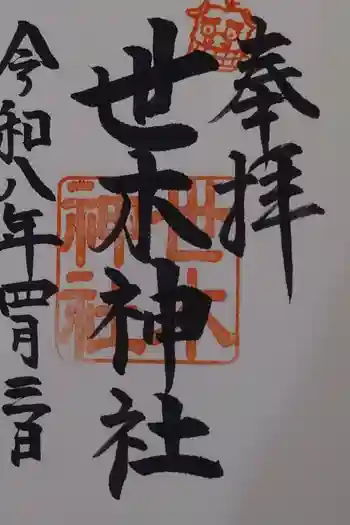 奉拝
世木神社
世木
神社
令和八年四月三日